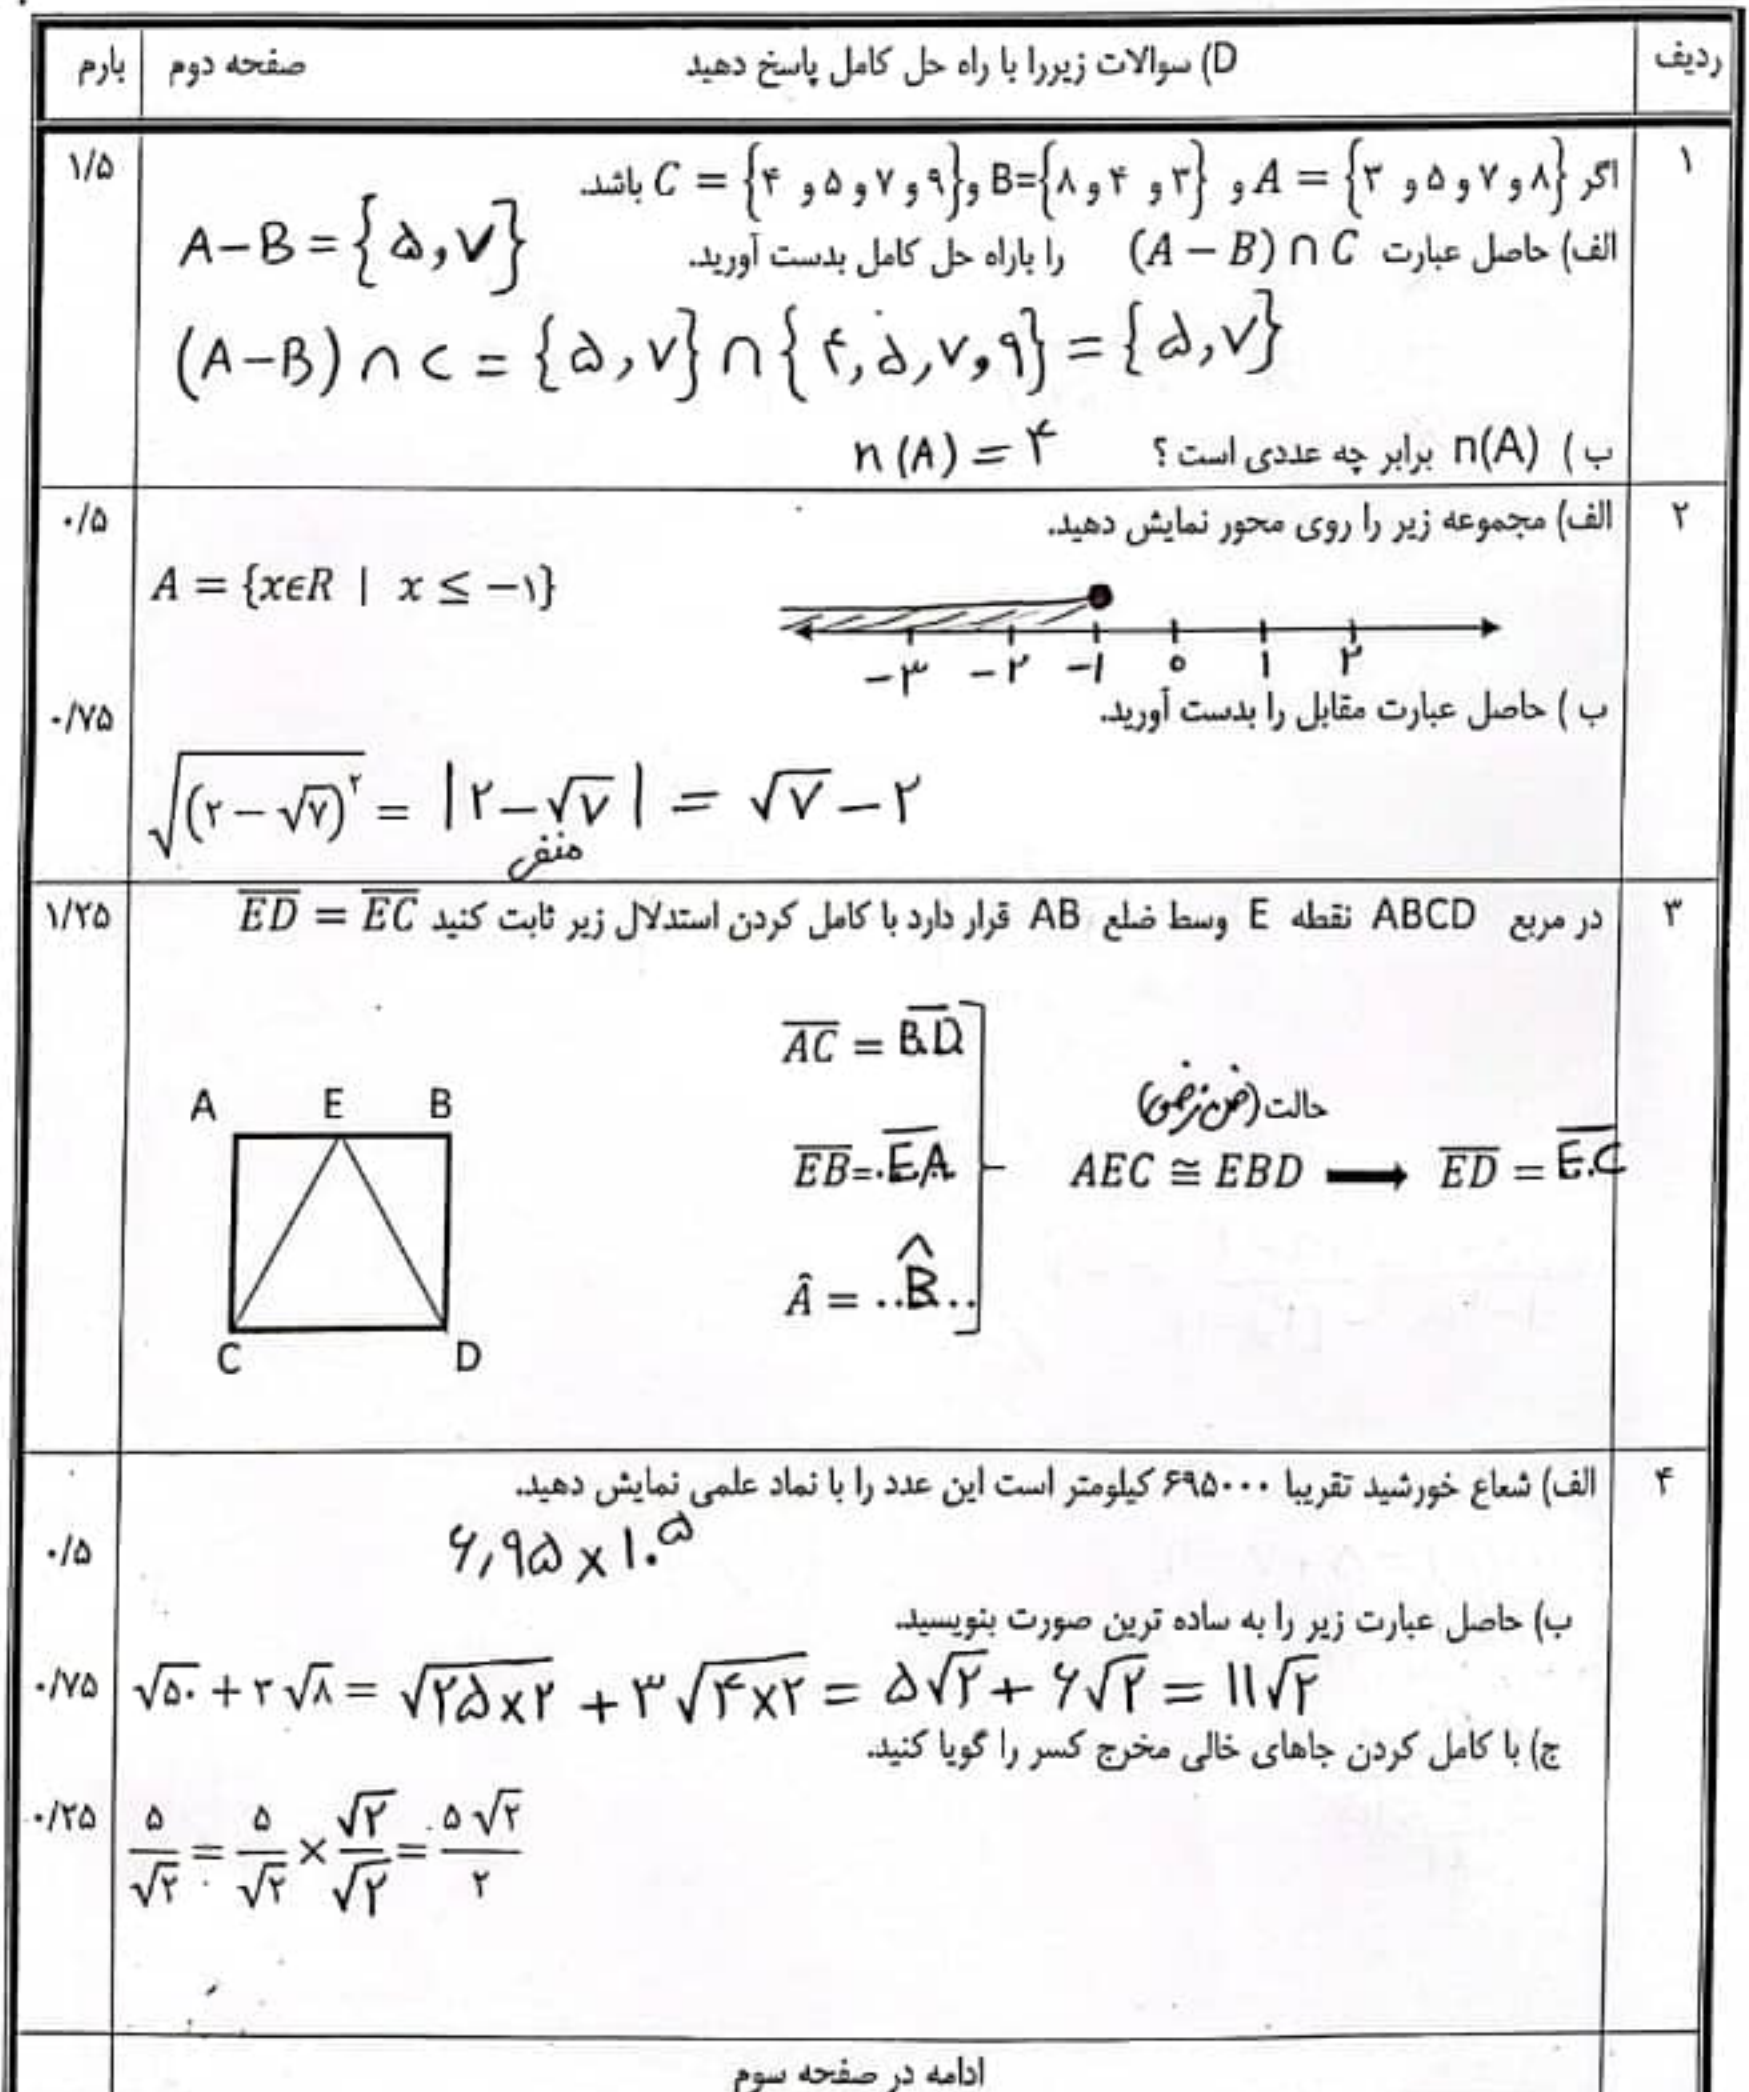 ردیف D) سوالات زیررا با راه حل کامل پاسخ دهید صفحه دوم بارم
۱ اگر A = {۳ و ۵ و ۷ و ۸} و B={۸ و ۴ و ۳} و C = {۴ و ۵ و ۷ و ۹} باشد. ۱/۵
الف) حاصل عبارت (A − B) ∩ C را باراه حل کامل بدست آورید. A-B={۵,۷}
(A-B)∩C = {۵,۷}∩{۴,۵,۷,۹}={۵,۷}
ب ) n(A) برابر چه عددی است ؟ n(A)=۴
۲ الف) مجموعه زیر را روی محور نمایش دهید. ۰/۵
A = {xϵR | x ≤ −۱}
-۳ -۲ -۱ ۰ ۱ ۲
ب ) حاصل عبارت مقابل را بدست آورید. ۰/۷۵
√(۲ − √۷)² = |۲-√۷| = √۷-۲
منفی
۳ در مربع ABCD نقطه E وسط ضلع AB قرار دارد با کامل کردن استدلال زیر ثابت کنید ED = EC ۱/۲۵
AC = BD
حالت (ض ز ض)
A E B
EB=.EA
AEC ≅ EBD ⟶ ED = E.C
Â = ..B̂..
C D
۴ الف) شعاع خورشید تقریبا ۶۹۵۰۰۰ کیلومتر است این عدد را با نماد علمی نمایش دهید.
۶,۹۵×۱۰⁵ ۰/۵
ب) حاصل عبارت زیر را به ساده ترین صورت بنویسید.
√۵۰ + ۳√۸ = √۲۵×۲ + ۳√۴×۲ = ۵√۲ + ۶√۲ = ۱۱√۲ ۰/۷۵
ج) با کامل کردن جاهای خالی مخرج کسر را گویا کنید.
۵/√۲ = ۵/√۲ × √۲/√۲ = ۵√۲/۲ ۰/۲۵
ادامه در صفحه سوم